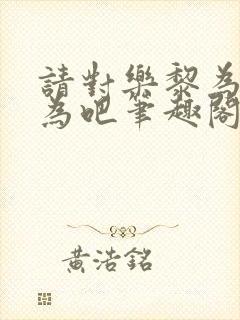 請對樂黎為
為吧筆趣閣
黃浩銘